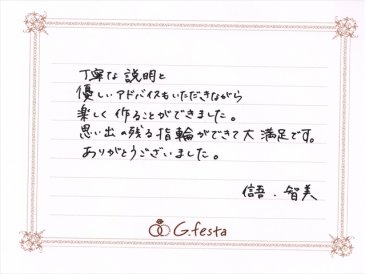 丁寧な説明と
優しいアドバイスもいただきながら
楽しく作ることができました。
思い出の残る指輪ができて大満足です。
ありがとうございました。
信吾・智美
G.festa